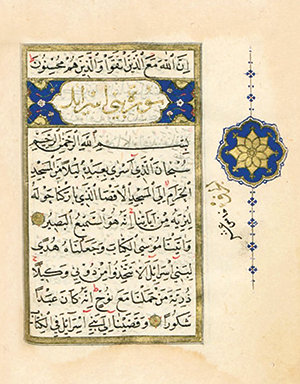 اِنَّ اللّٰهَ مَعَ الَّذِينَ اتَّقَوْا وَالَّذِينَ هُمْ مُحْسِنُونَ
سورة بني اسرائيل
بِسْمِ اللّٰهِ الرَّحْمٰنِ الرَّحِيمِ
سُبْحَانَ الَّذِي اَسْرٰى بِعَبْدِهِ لَيْلًا مِنَ الْمَسْجِدِ
الْحَرَامِ اِلَى الْمَسْجِدِ الْاَقْصَا الَّذِي بَارَكْنَا حَوْلَهُ
لِنُرِيَهُ مِنْ اٰيَاتِنَا اِنَّهُ هُوَ السَّمِيعُ الْبَصِيرُ
وَاٰتَيْنَا مُوسَى الْكِتَابَ وَجَعَلْنَاهُ هُدًى
لِبَنِي اِسْرَائِلَ اَلَّا تَتَّخِذُوا مِنْ دُونِي وَكِيلًا
ذُرِّيَّةَ مَنْ حَمَلْنَا مَعَ نُوحٍ اِنَّهُ كَانَ عَبْدًا
شَكُورًا وَقَضَيْنَا اِلٰى بَنِي اِسْرَائِلَ فِي الْكِتَابِ